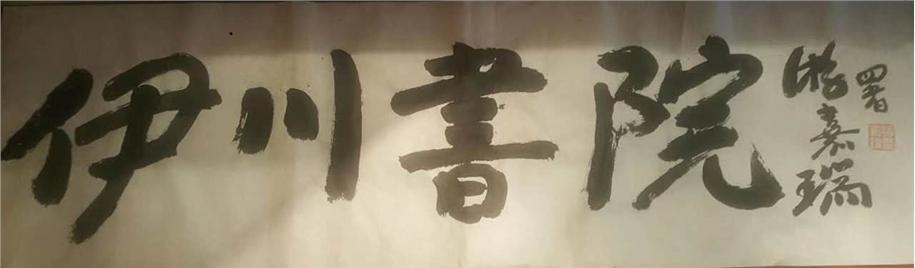 伊川書院
游嘉瑞
署